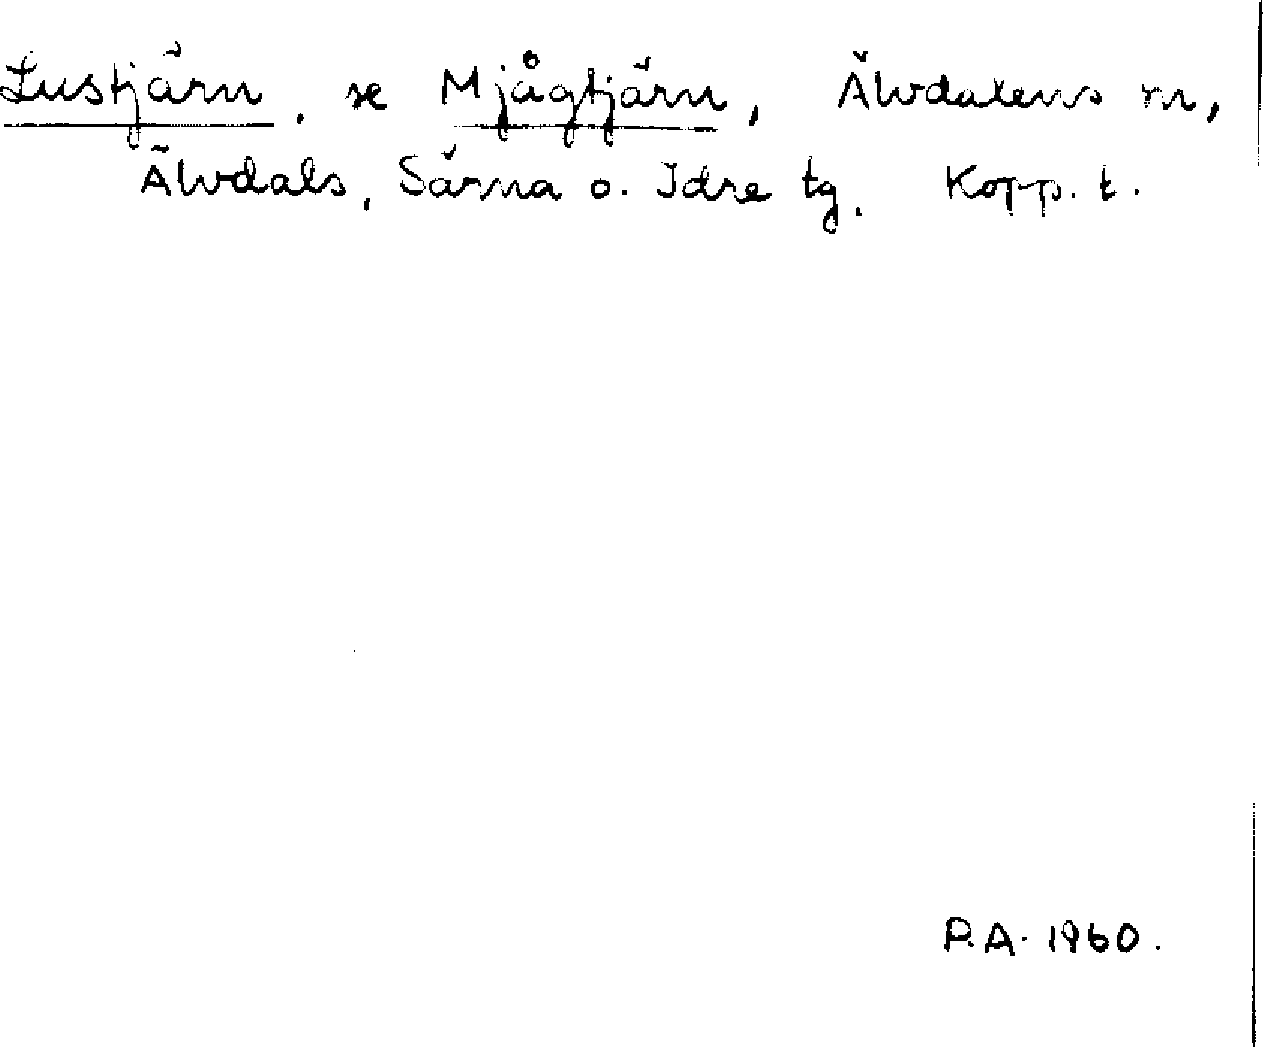 Lustjärn, se Mjågtjärn, Älvdalens sn,
Älvdals, Särna o. Idre tg. Kopp. l.
P.A. 1960.